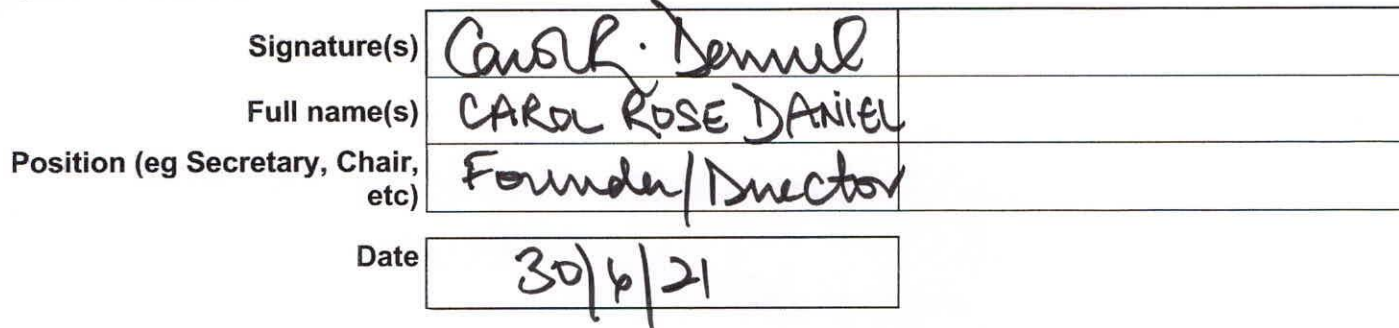 Signature(s) Carol R. Daniel
Full name(s) CAROL ROSE DANIEL
Position (eg Secretary, Chair,
etc) Founder/Director
Date 30/6/21